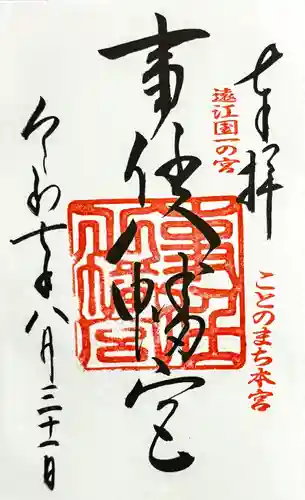 奉拝
遠江国一の宮
ことのまち本宮
事任八幡宮
事任
八幡宮
令和七年八月三十一日